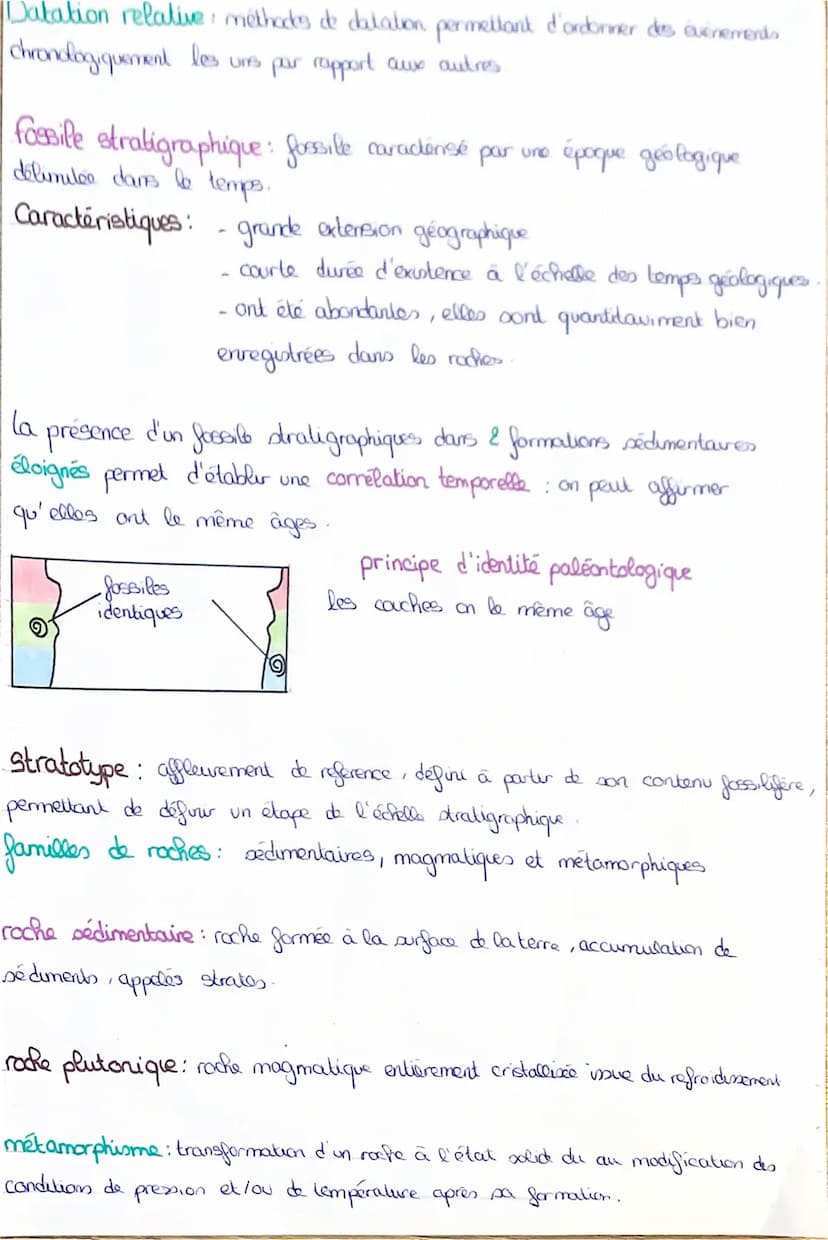 Datation relative : méthodes de datation permettant d'ordonner des événements
chronologiquement les uns par rapport aux autres
fossile stratigraphique : fossile caractérisé par une époque géologique
délimitée dans le temps.
Caractéristiques : - grande extension géographique
- courte durée d'existence à l'échelle des temps géologiques.
- ont été abondantes, elles sont quantitaviment bien
enregistrées dans les roches.
la présence d'un fossile stratigraphiques dans 2 formations sédimentaires
éloignés permet d'établir une corrélation temporelle : on peut affirmer
qu'elles ont le même âges.
principe d'identité paléontologique
fossiles
identiques
les couches on le même âge
Stratotype : affleurement de reference, défini à partir de son contenu fossilifère,
permettant de définir un étape de l'échelle stratigraphique.
familles de roches : sédimentaires, magmatiques et métamorphiques
roche sédimentaire : roche formée à la surface de la terre, accumulation de
sédiments, appelés strates.
roche plutonique : roche magmatique entièrement cristallisée issue du refroidissement
métamorphisme : transformation d'un roche à l'état solid du au modification des
conditions de pression et/ou de température après sa formation.